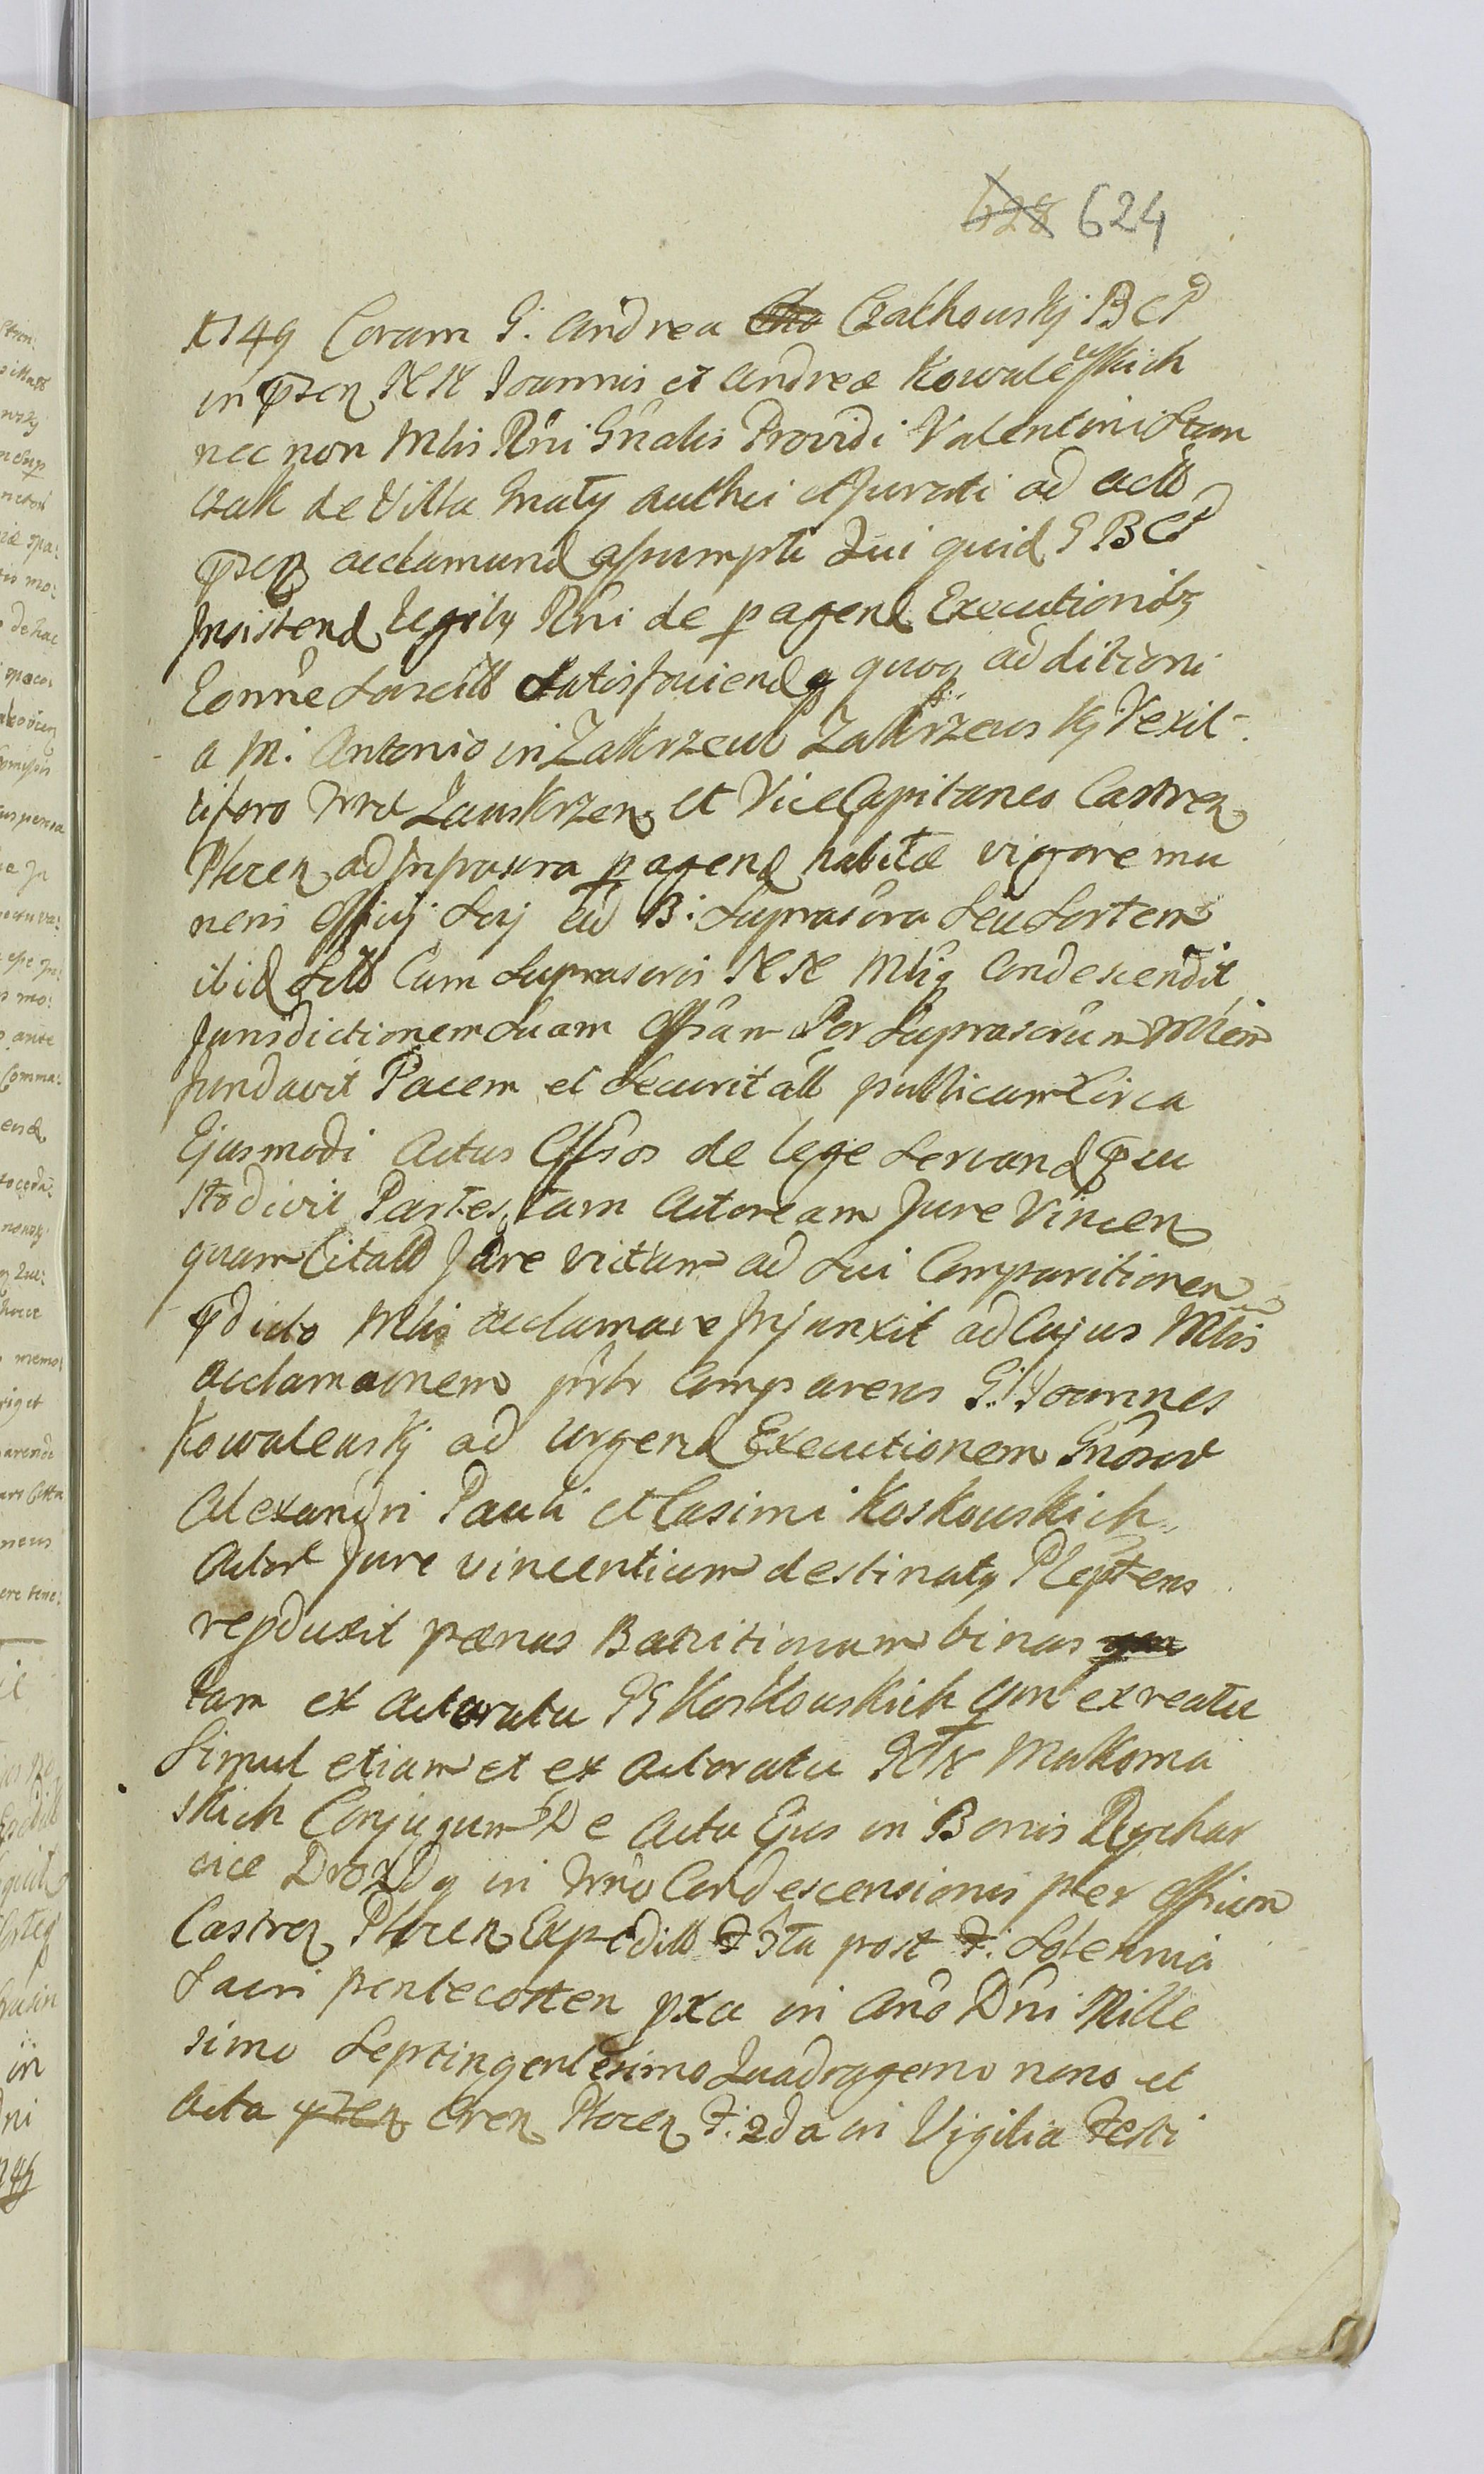 628 624
1749 Coram G. Andrea Czalhowskj B C P
in pszen NN Joannis et Andreæ Kowalewskich
nec non Mlis Rñi Gnalis Providi Valentini Stan
czak de Villa Gnaty authci et Jurati ad actũ
pszen acclamand assumpti Qui quid G B C P
Insistend legibz Rñi de peragend Executionibz
Eonñe sancitis satisfaciend quoq additioni
a M. Antonio in Zakrzew Zakrzewskj Vexil-
lifero Wschovien et ViceCapitaneo Castren
Plocen ad Infrascra peragend habitæ vigore mu
neris Offij Sui ad B: suprascra seu Sortem
ibid sitũ Cum suprascris NN Mliq Condescendit
Jurisdictionem suam Offsam Per suprascrum Mlem
fundavit Pacem et securitatẽ publicam Circa
Ejusmodi Actus Offsos de lege servand percu
stodivit Partes tam Actoream Jure Vincen
quam Citatã Jure victam ad sui Comparitionem
pdicto Mlis acclamare Injunxit ad Cujus Mlis
acclamaonem prñtr Comparens G. Joannes
Kowalewskj ad urgend Executionem Gñosor
Alexandri Pauli et Casimi Koskowskich
Actor Jure vincentium destinatq Pleptens
repduxit pænas Bannitionum binas
tam ex Actoratu GG Koskowskich qm ex reatu
Simul etiam et ex Actoratu NN Makoma
skich Conjugum De Actu Ejus in Bonis Rychar
cice Drozdy in Trño Condescensionis pter Offium
Castren Plocen Expeditũ F 5ta post F. Solennia
Sacri pentecosten pxa in Año Dñi Mille
simo Septingentesimo Quadragemo nono et
Acta pszen Cren Plocen F. 2da in Vigilia Festi